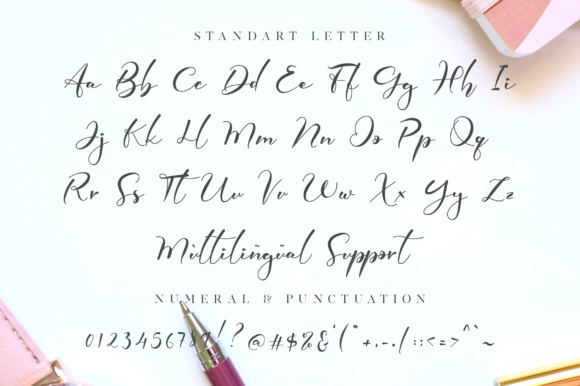 STANDART LETTER
Aa Bb Cc Dd Ee Ff Gg Hh Ii
Jj Kk Ll Mm Nn Oo Pp Qq
Rr Ss Tt Uu Vv Ww Xx Yy Zz
Multilingual Support
NUMERAL & PUNCTUATION
0123456789!?@#$%&'("+,-./::<=>^`~